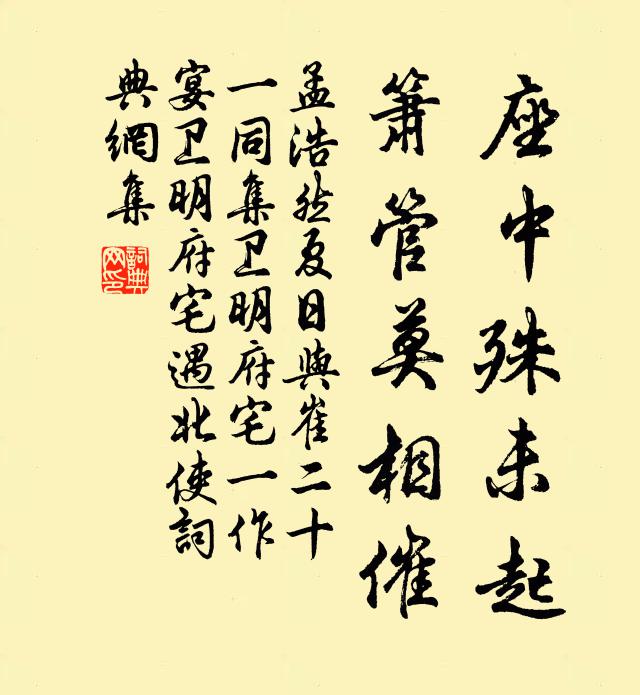 座中殊未起
箫管莫相催
孟浩然夏日與崔二十
一同集卫明府宅一作
宴卫明府宅遇北使詞
典網集
詞典
网印